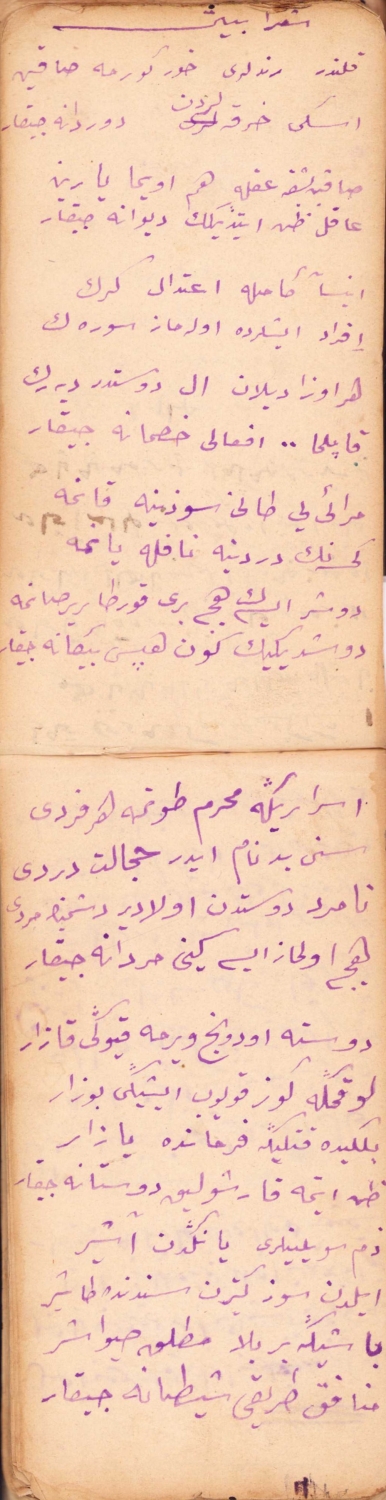 قلندر رندلری خور كورمه صاقین
اسكی خرقه‌لردن دوردانه چیقار
عقله هم اویما یارین
عاقل ظن ایتدیكك دیوانه چیقار
انسان كامله اعتدال كرك
افراد ایشلرده اولماز سوره‌ك
هر اوزادیلان ال دوستدر دیه‌رك
قاپیلما .. افعالی خصمانه چیقار
مرائی‌لی طالی سوزینه قانمه
كسه‌نك دردینه نافله یانمه
دوشر ایسه‌ك هیچ بری قورطاریر صانمه
دوشدیكك كون هپسی بیكانه چیقار
اسراریڭه محرم طوتمه هر فردی
سنی بدنام ایدر خجالت دردی
نامرد دوستدن اولادیر دشمنڭ مردی
هیچ اولماز ایسه كینی مردانه چیقار
دوسته اودونج ویرمه قیوڭی قازار
لوقمه‌ڭه كوز قویوب ایشیڭی بوزار
بلكیده قتلیڭه فرمانده یازار
ظن ایتمه قارشولیق دوستانه چیقار
ذم سویلینلری یانڭدن آشیر
ایلدن سوز كتیرن سندنده طاشیر
باشیڭه بر بلا مطلق صیواشیر
منافق طریقی شیطانه چیقار